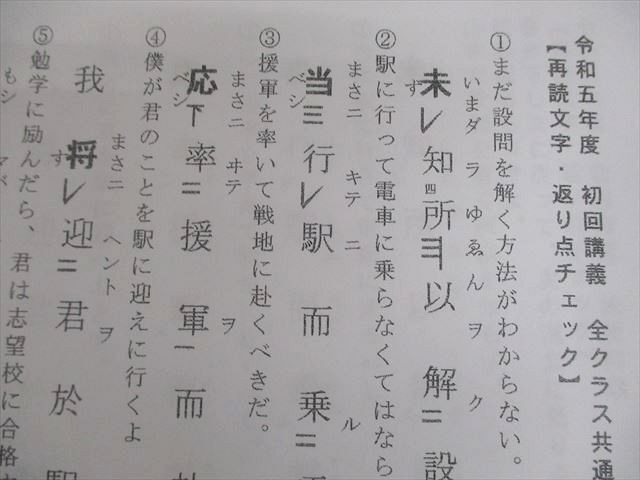 令和五年度 初回講義 全クラス共通
【再読文字・返り点チェック】
①まだ設問を解く方法がわからない。
いまダ ラ ゆゑんヲ ク
未レ知四所三以 解二設
ず
②駅に行って電車に乗らなくてはなら
まさニ キテ ニ ル
当三行レ駅而乗二
ベシ
③援軍を率いて戦地に赴くべきだ。
まさニ ヰテ ヲ
応下率二援軍一而
ベシ
④僕が君のことを駅に迎えに行くよ
まさニ ヘント ヲ
我将レ迎二君於
す
⑤勉学に励んだら、君は志望校に合格
もシ